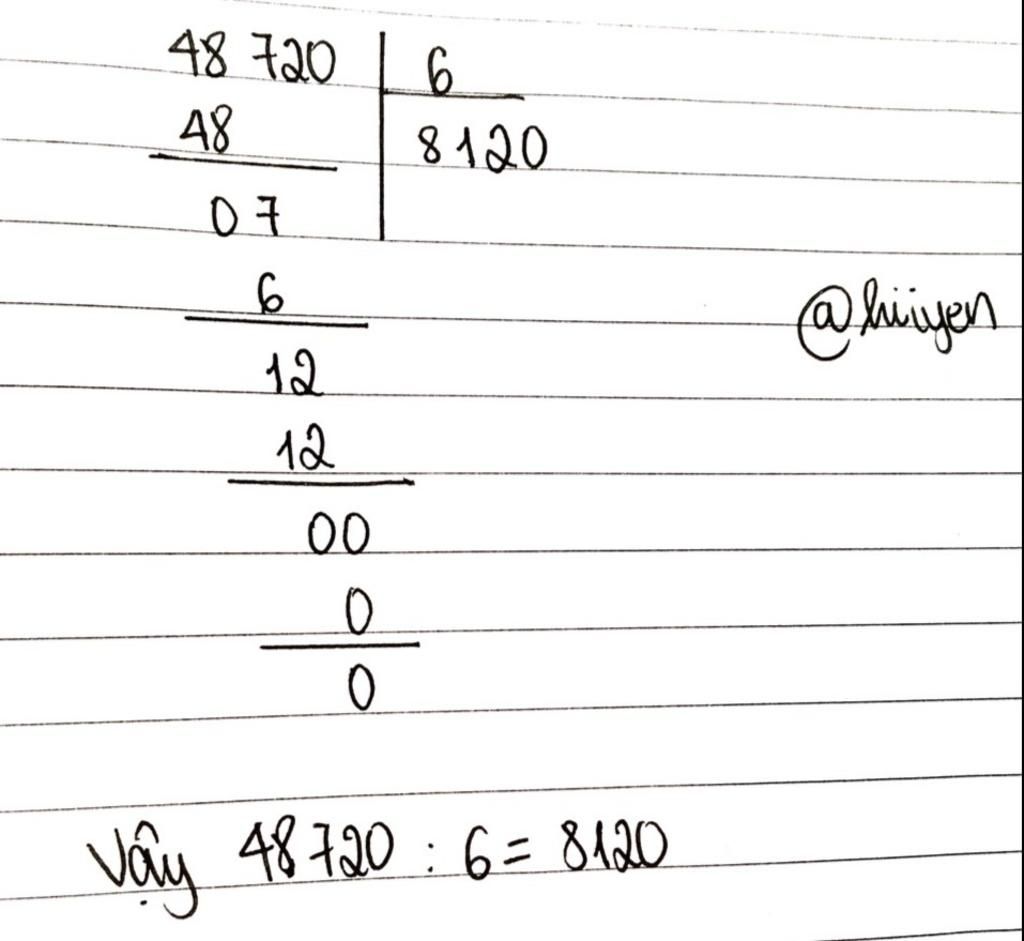 48 720 6
48 8120
07
6
@hiiyen
12
12
00
0
0
Vậy 48720 : 6 = 8120